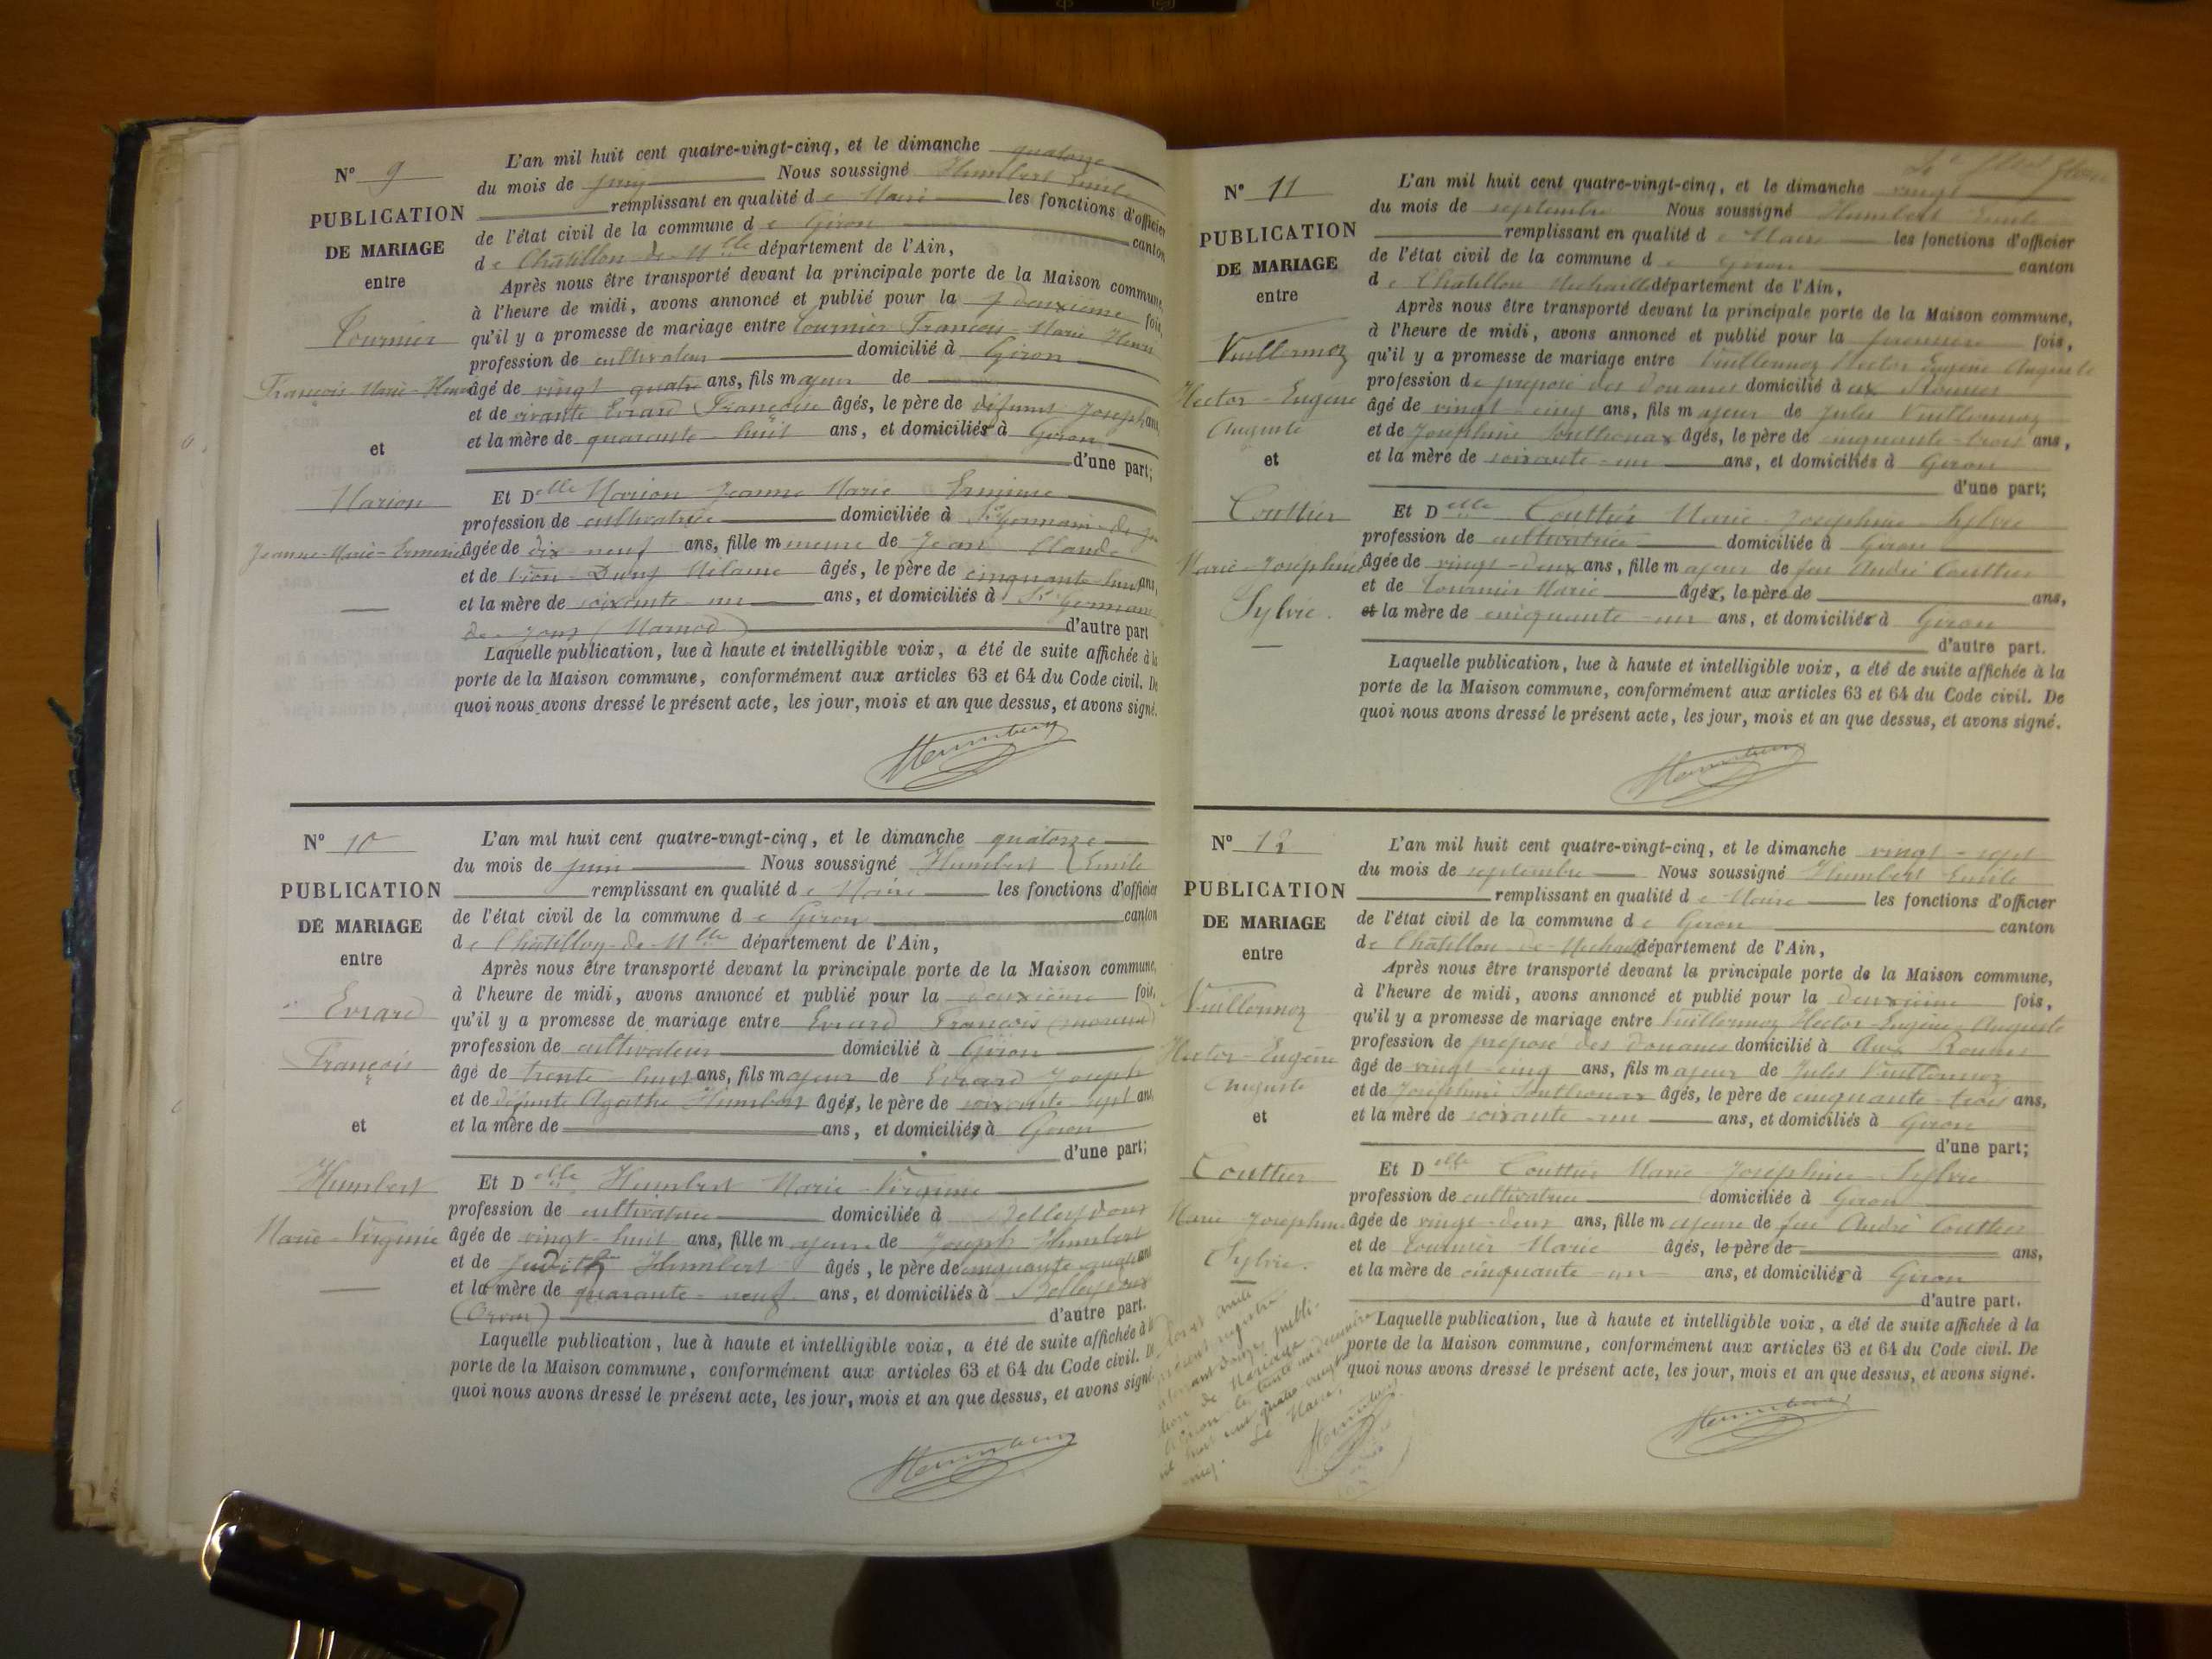 N° 9
PUBLICATION
DE MARIAGE
entre
Tournier
François-Marie-Henri
et
Marion
Jeanne-Marie-Ermine
L'an mil huit cent quatre-vingt-cinq, et le dimanche quatorze
du mois de juin Nous soussigné Humbert Emile
remplissant en qualité de Maire les fonctions d'officier
de l'état civil de la commune de Giron canton
de Châtillon-de-Mlle département de l'Ain,
Après nous être transporté devant la principale porte de la Maison commune,
à l'heure de midi, avons annoncé et publié pour la deuxième fois,
qu'il y a promesse de mariage entre Tournier François-Marie Henri
profession de cultivateur domicilié à Giron
âgé de vingt quatre ans, fils majeur de
et de vivante Evrard Françoise âgés, le père de défunt Joseph ans
et la mère de quarante-huit ans, et domiciliés à Giron
d'une part;
Et Delle Marion Jeanne Marie Ermine
profession de cultivatrice domiciliée à St Germain-de-Jo
âgée de dix-neuf ans, fille mineure de Jean Claude
et de âgés, le père de cinquante-huit ans,
et la mère de soixante-un ans, et domiciliés à St Germain
de-Joux (Marnod) d'autre part
Laquelle publication, lue à haute et intelligible voix, a été de suite affichée à la
porte de la Maison commune, conformément aux articles 63 et 64 du Code civil. De
quoi nous avons dressé le présent acte, les jour, mois et an que dessus, et avons signé.
Humbert
N° 10
PUBLICATION
DE MARIAGE
entre
Evrard
François
et
Humbert
Marie-Virginie
L'an mil huit cent quatre-vingt-cinq, et le dimanche quatorze
du mois de juin Nous soussigné Humbert Emile
remplissant en qualité de Maire les fonctions d'officier
de l'état civil de la commune de Giron canton
de Châtillon-de-Mlle département de l'Ain,
Après nous être transporté devant la principale porte de la Maison commune,
à l'heure de midi, avons annoncé et publié pour la deuxième fois,
qu'il y a promesse de mariage entre Evrard François
profession de cultivateur domicilié à Giron
âgé de trente-huit ans, fils majeur de Evrard Joseph
et de défunte Agathe Humbert âgés, le père de soixante-sept ans,
et la mère de ans, et domiciliés à Giron
d'une part;
Et Delle Humbert Marie-Virginie
profession de cultivatrice domiciliée à Belleydoux
âgée de vingt-huit ans, fille majeure de Joseph Humbert
et de Judith Humbert âgés, le père de cinquante ans
et la mère de quarante-neuf ans, et domiciliés à Belleydoux
(Orvaz) d'autre part.
Laquelle publication, lue à haute et intelligible voix, a été de suite affichée à la
porte de la Maison commune, conformément aux articles 63 et 64 du Code civil. De
quoi nous avons dressé le présent acte, les jour, mois et an que dessus, et avons signé.
Humbert
N° 11
PUBLICATION
DE MARIAGE
entre
Vuillermoz
Hector-Eugène
Auguste
et
Couttier
Marie-Joséphine
Sylvie.
L'an mil huit cent quatre-vingt-cinq, et le dimanche vingt
du mois de septembre Nous soussigné Humbert Emile
remplissant en qualité de Maire les fonctions d'officier
de l'état civil de la commune de Giron canton
de Châtillon Michaille département de l'Ain,
Après nous être transporté devant la principale porte de la Maison commune,
à l'heure de midi, avons annoncé et publié pour la première fois,
qu'il y a promesse de mariage entre Vuillermoz Hector Eugène Auguste
profession de préposé des douanes domicilié à ux Rousses
âgé de vingt-cinq ans, fils majeur de Jules Vuillermoz
et de Joséphine Southonax âgés, le père de cinquante-trois ans,
et la mère de soixante-un ans, et domiciliés à Giron
d'une part;
Et Delle Couttier Marie-Joséphine-Sylvie
profession de cultivatrice domiciliée à Giron
âgée de vingt-deux ans, fille majeure de feu André Couttier
et de Tournier Marie âgés, le père de ans,
et la mère de cinquante-un ans, et domiciliés à Giron
d'autre part.
Laquelle publication, lue à haute et intelligible voix, a été de suite affichée à la
porte de la Maison commune, conformément aux articles 63 et 64 du Code civil. De
quoi nous avons dressé le présent acte, les jour, mois et an que dessus, et avons signé.
Humbert
N° 12
PUBLICATION
DE MARIAGE
entre
Vuillermoz
Hector-Eugène
Auguste
et
Couttier
Marie-Joséphine
Sylvie.
L'an mil huit cent quatre-vingt-cinq, et le dimanche vingt-sept
du mois de septembre Nous soussigné Humbert Emile
remplissant en qualité de Maire les fonctions d'officier
de l'état civil de la commune de Giron canton
de Châtillon-de-Michaille département de l'Ain,
Après nous être transporté devant la principale porte de la Maison commune,
à l'heure de midi, avons annoncé et publié pour la deuxième fois,
qu'il y a promesse de mariage entre Vuillermoz Hector-Eugène-Auguste
profession de préposé des douanes domicilié à Aux Rousses
âgé de vingt-cinq ans, fils majeur de Jules Vuillermoz
et de Joséphine Southonax âgés, le père de cinquante-trois ans,
et la mère de soixante-un ans, et domiciliés à Giron
d'une part;
Et Delle Couttier Marie-Joséphine-Sylvie
profession de cultivatrice domiciliée à Giron
âgée de vingt-deux ans, fille majeure de feu André Couttier
et de Tournier Marie âgés, le père de ans,
et la mère de cinquante-un ans, et domiciliés à Giron
d'autre part.
Laquelle publication, lue à haute et intelligible voix, a été de suite affichée à la
porte de la Maison commune, conformément aux articles 63 et 64 du Code civil. De
quoi nous avons dressé le présent acte, les jour, mois et an que dessus, et avons signé.
Humbert
présent registre
douze publi-
tion de Mariage
A Giron le trente un décembre
mil huit cent quatre vingt
cinq.
Le Maire,
Humbert